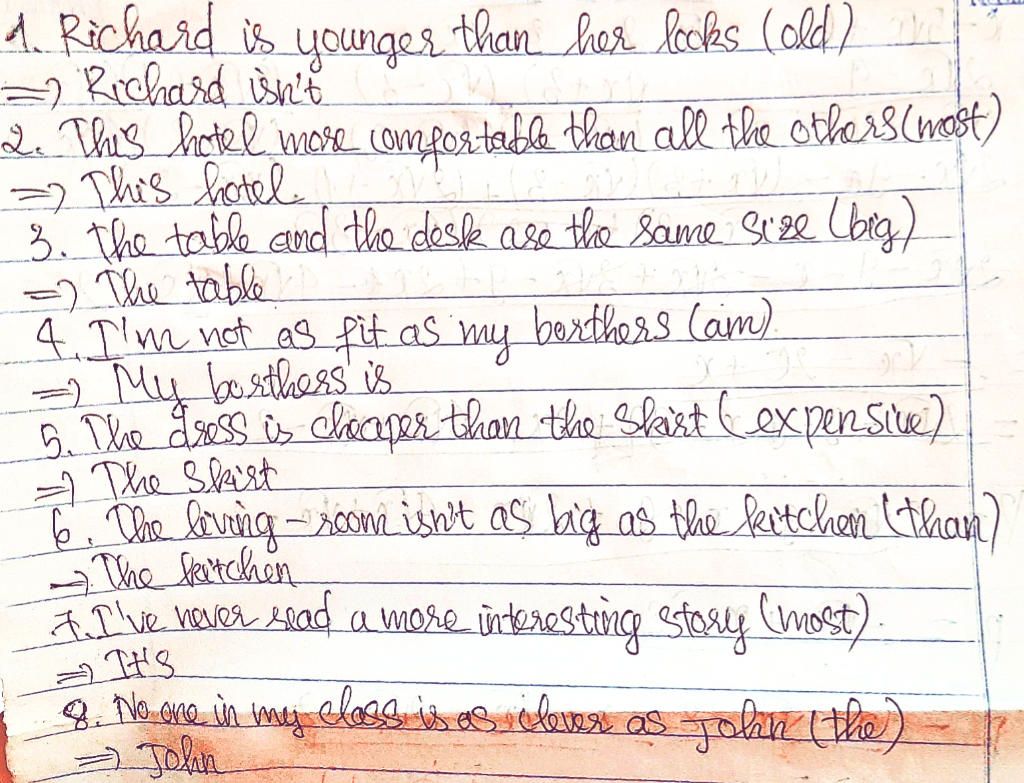 1. Richard is younger than her looks (old)
=> Richard isn't
2. This hotel more comfortable than all the others (most)
=> This hotel.
3. the table and the desk are the same size (big)
=> The table
4. I'm not as fit as my borthers (am)
=> My borthers is
5. The dress is cheaper than the skirt (expensive)
=> The Skirt
6. The living-room isn't as big as the kitchen (than)
=> The kitchen
7. I've never read a more interesting story (most).
=> It's
8. No one in my class is as clever as John (the)
=> John